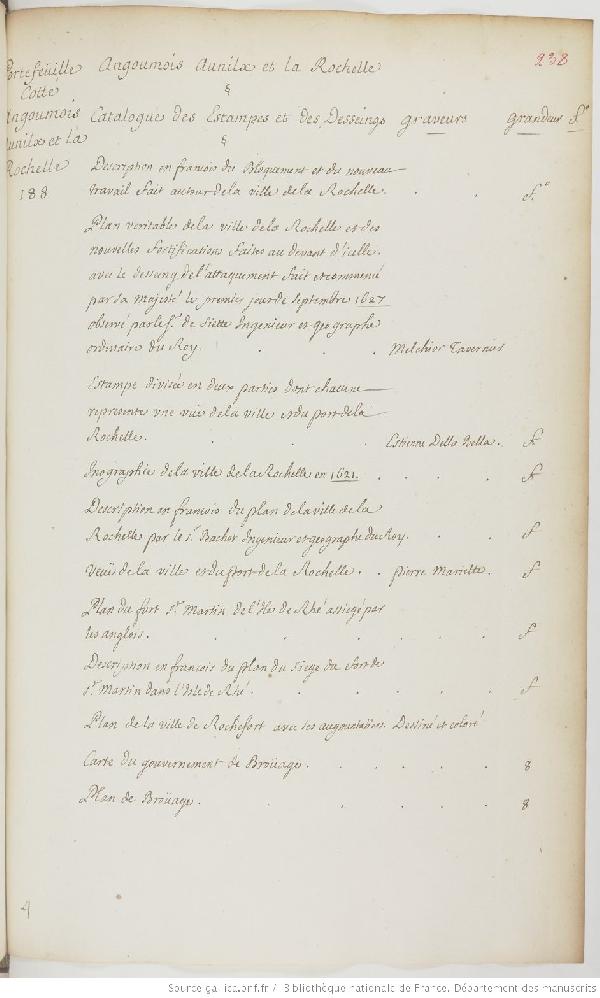 238
Portefeüille
Cotte
Angoumois
Aunilx et la
Rochelle
188
Angoumois Aunilx et la Rochelle
§
Catalogue des Estampes et des Desseings graveurs grandeur f.º
§
Description en francois du Bloquement et du nouveau
travail fait autour de la ville de la Rochelle. . . f.º
Plan veritable de la ville de la Rochelle et des
nouvelles fortifications faites au devant d'icelle.
avec le desseing de l'attaquement fait et commencé
par sa Majesté le premier jour de Septembre 1627
observé par le S.r de Siette Ingenieur et geographe
ordinaire du Roy. . . . Melchior Tavernier
Estampe divisée en deux parties dont chacune
represente vne vüe de la ville et du port de la
Rochelle. . . . Estienne Della Bella. f
Inographie de la ville de la Rochelle en 1621. . . . f
Description en francois du plan de la ville de la
Rochelle par le s.r Bachot Ingenieur et geographe du Roy. . . f
Veüe de la ville et du port de la Rochelle. . pierre Mariette. f
Plan du fort S.t Martin de l'Isle de Rhé assiegé par
les anglois. . . . . . f
Description en francois du plan du Siege du fort de
S.t Martin dans l'Isle de Rhé. . . . . f
Plan de la ville de Rochefort avec ses augmentations. Dessiné et coloré
Carte du gouvernement de Broüage. . . . . . 8
Plan de Broüage. . . . . . 8
4
Source gallica.bnf.fr / Bibliothèque nationale de France. Département des manuscrits